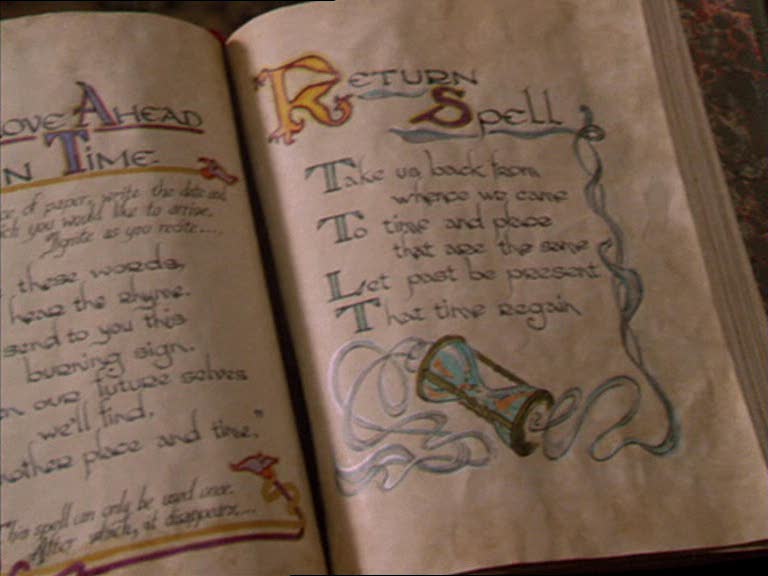 Ahead
n Time
of paper, write the date and
you would like to arrive.
Ignite as you recite....
these words,
hear the rhyme.
send to you this
burning sign.
our future selves
we'll find,
another place and time."
spell can only be used once.
After which, it disappears...
Return
Spell
Take us back from
whence we came
To time and place
that are the same
Let past be present
That time regain